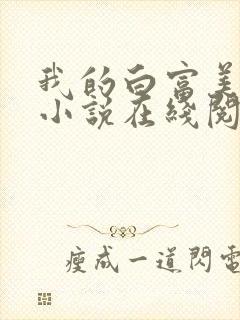 我的白富美
小说在线阅
瘦成一道閃電